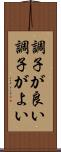 調子が良い
調子がよい